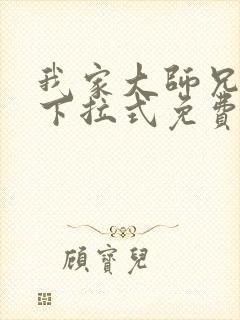 我家大師兄
下拉式免費
顧寶兒